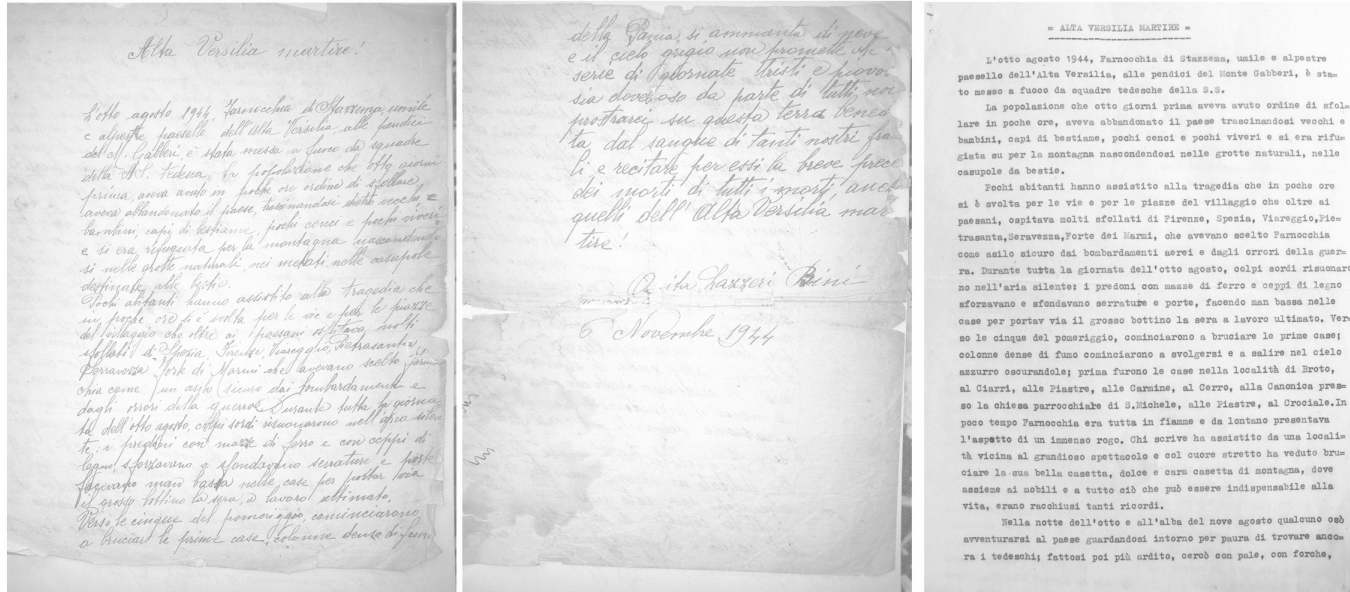 Alta Versilia martire!
L'otto agosto 1944, Farnocchia di Stazzema, umile
e alpestre paesello dell'Alta Versilia alle pendici
del M. Gabberi è stata messa a fuoco da squadre
della S.S. Tedesca. La popolazione che otto giorni
prima, aveva avuto in poche ore ordine di sfollare,
aveva abbandonato il paese, trascinandosi dietro vecchi,
bambini, capi di bestiame, pochi cenci e pochi viveri
e si era rifugiata per la montagna nascondendo
si nelle grotte naturali, nei metati, nelle casupole
destinate alle bestie.
Pochi abitanti hanno assistito alla tragedia che
in poche ore si è svolta per le vie e per le piazze
del villaggio che oltre ai paesani ospitava, molti
sfollati di Spezia, Firenze, Viareggio, Pietrasanta,
Serravezza, Forte di Marmi che avevano scelto Farnoc
chia come un asilo sicuro dai bombardamenti e
dagli orrori della guerra. Durante tutta la giorna
ta dell'otto agosto, colpi sordi risuonarono nell'aria silen
te; i predoni con mazze di ferro e con ceppi di
legno, sforzavano e sfondavano serrature e porte
facevano man bassa nelle case per portar via
il grosso bottino la sera, a lavoro ultimato.
Verso le cinque del pomeriggio, cominciarono
a bruciare le prime case, colonne dense di fum
della Pania, si ammanta di neve
e il cielo grigio non promette che
serie di giornate tristi e piovo
sia doveroso da parte di tutti, noi
prostrarci su questa terra bagna
ta, dal sangue di tanti nostri fra
li e recitare per essi la breve prece
dei morti di tutti i morti, anch
quelli dell'Alta Versilia mar
tire!
Lazzeri Bini
6 Novembre 1944
= ALTA VERSILIA MARTIRE =
L'otto agosto 1944, Farnocchia di Stazzema, umile e alpestre
paesello dell'Alta Versilia, alle pendici del Monte Gabberi, è sta=
to messo a fuoco da squadre tedesche della S.S.
La popolazione che otto giorni prima aveva avuto ordine di sfol=
lare in poche ore, aveva abbandonato il paese trascinandosi vecchi e
bambini, capi di bestiame, pochi cenci e pochi viveri e si era rifu=
giata su per la montagna nascondendosi nelle grotte naturali, nelle
casupole da bestie.
Pochi abitanti hanno assistito alla tragedia che in poche ore
si è svolta per le vie e per le piazze del villaggio che oltre ai
paesani, ospitava molti sfollati di Firenze, Spezia, Viareggio,Pie=
trasanta,Seravezza,Forte dei Marmi, che avevano scelto Farnocchia
come asilo sicuro dai bombardamenti aerei e dagli orrori della guer=
ra. Durante tutta la giornata dell'otto agosto, colpi sordi risuonaro
no nell'aria silente: i predoni con mazze di ferro e ceppi di legno
sforzavano e sfondavano serrature e porte, facendo man bassa nelle
case per portav via il grosso bottino la sera a lavoro ultimato. Ver=
so le cinque del pomeriggio, cominciarono a bruciare le prime case;
colonne dense di fumo cominciarono a svolgersi e a salire nel cielo
azzurro oscurandole; prima furono le case nella località di Broto,
al Ciarri, alle Piastre, alle Carmine, al Cerro, alla Canonica pres=
so la chiesa parrocchiale di S.Michele, alle Piastre, al Crociale.In
poco tempo Farnocchia era tutta in fiamme e da lontano presentava
l'aspetto di un immenso rogo. Chi scrive ha assistito da una locali=
tà vicina al grandioso spettacolo e col cuore stretto ha veduto bru=
ciare la sua bella casetta, dolce e cara casetta di montagna, dove
assieme ai mobili e a tutto ciò che può essere indispensabile alla
vita, erano racchiusi tanti ricordi.
Nella notte dell'otto e all'alba del nove agosto qualcuno osò
avventurarsi al paese guardandosi intorno per paura di trovare anco=
ra i tedeschi; fattosi poi più ardito, cercò con pale, con forche,